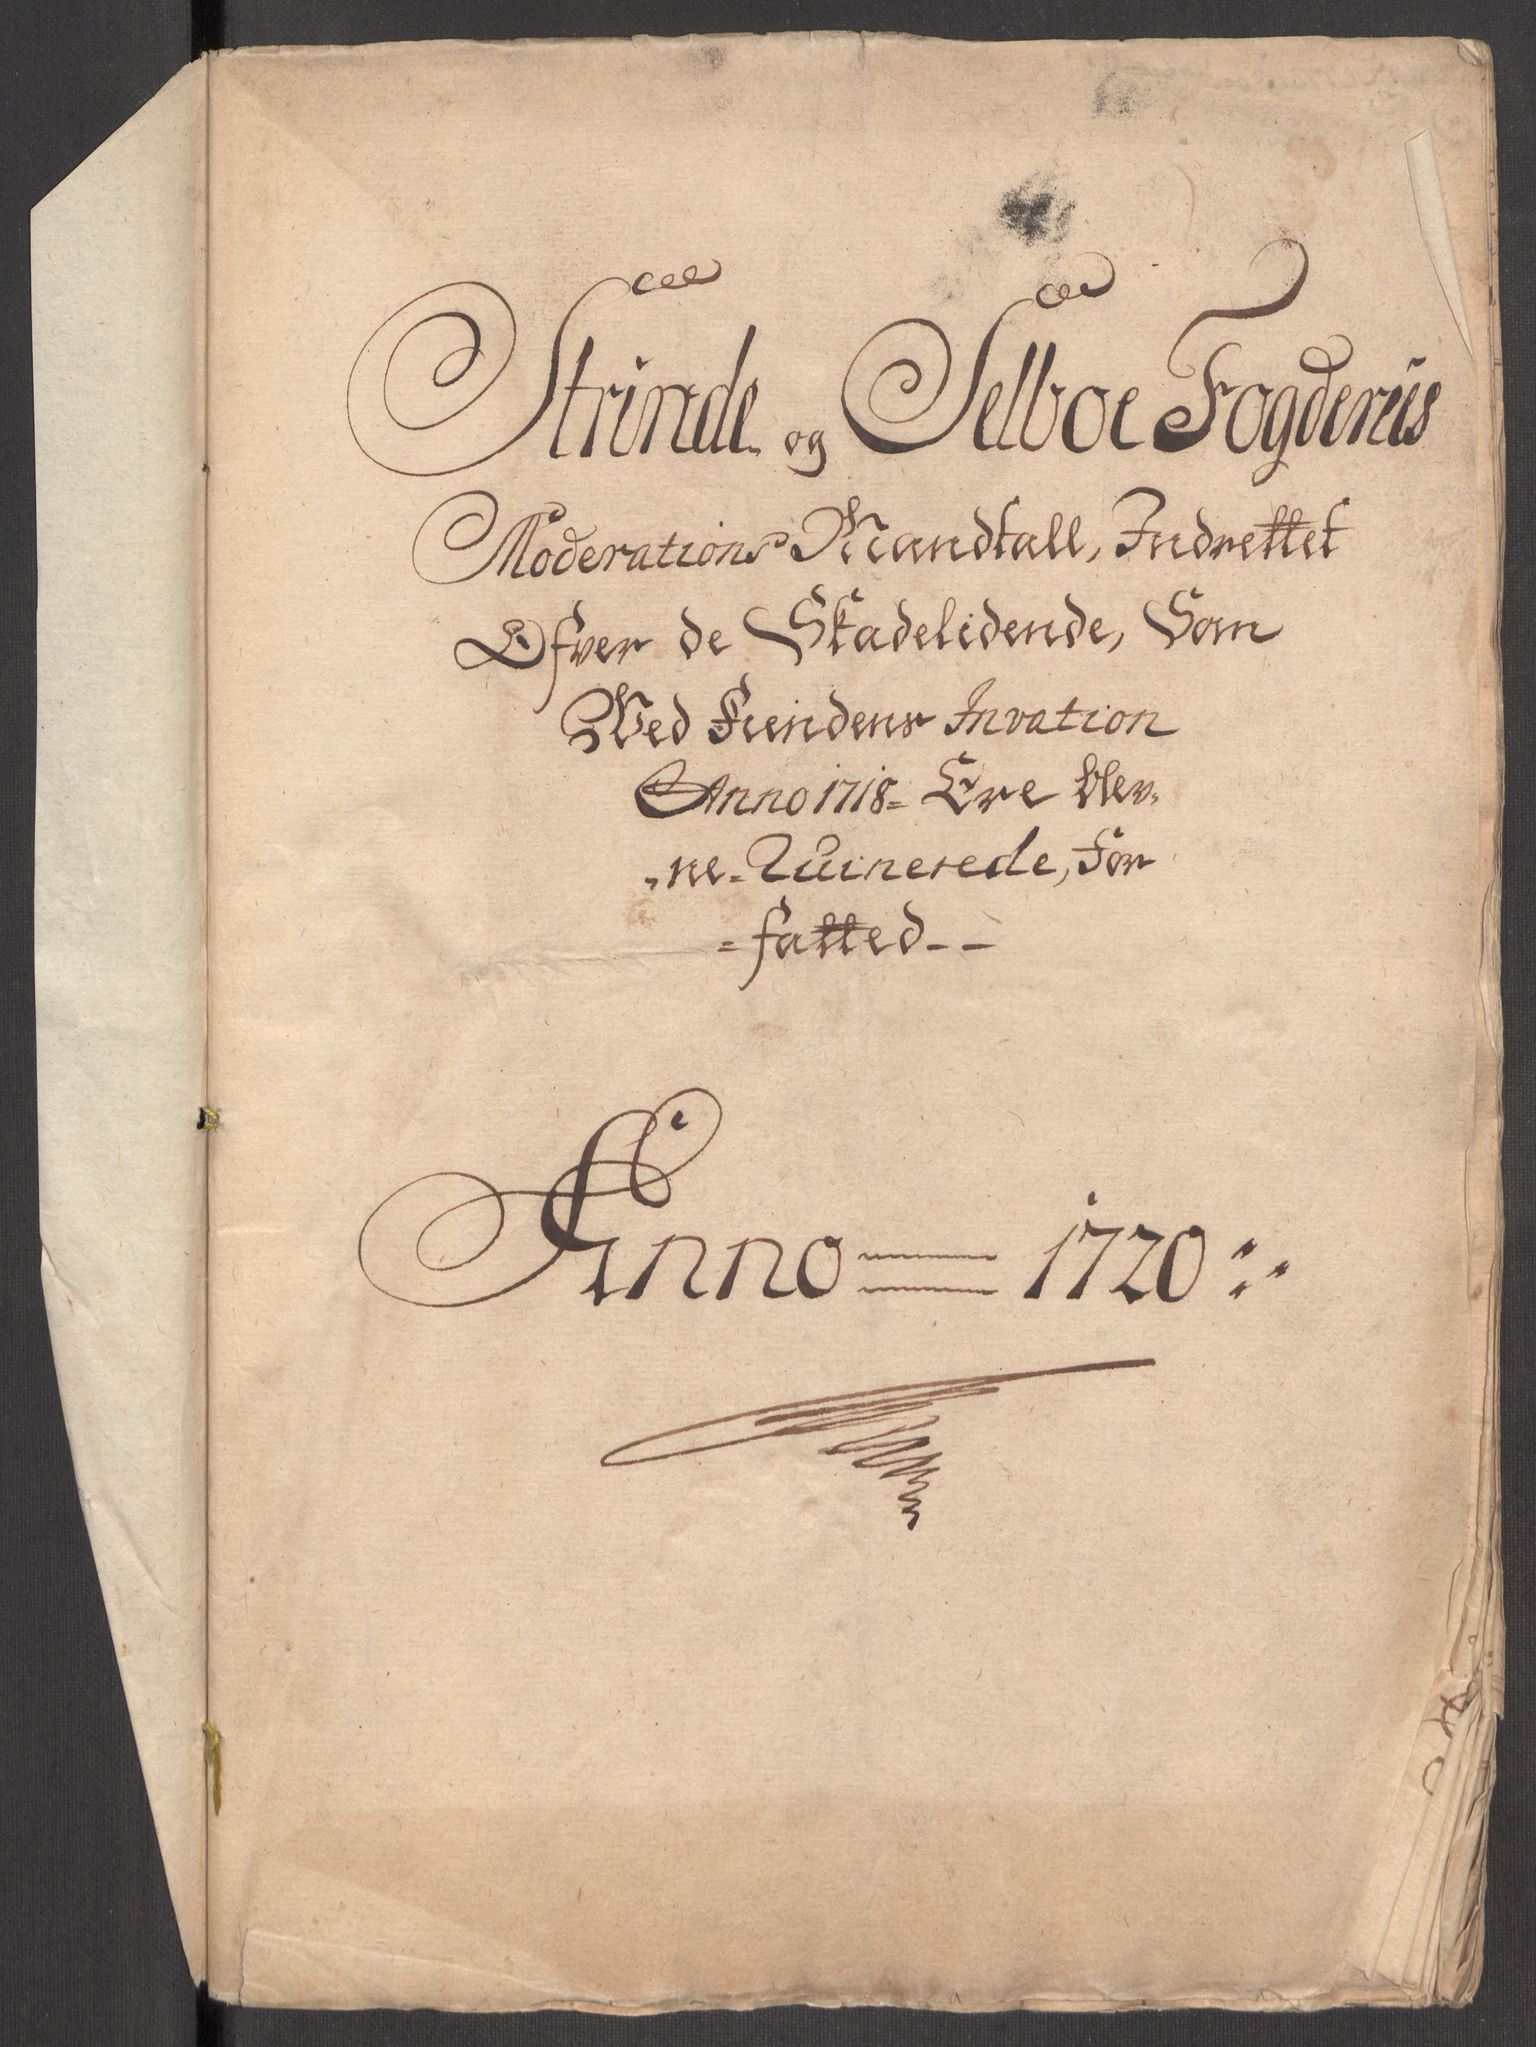 Strinde og Selboe Fogderies
Moderations Mandtall, Indrettet
Ofver de Skadelidende, Som
Ved Fiendens Invation
Anno 1718 = Ere blev,
,ne = Ruinerede, for
= fatted - -
Anno = 1720